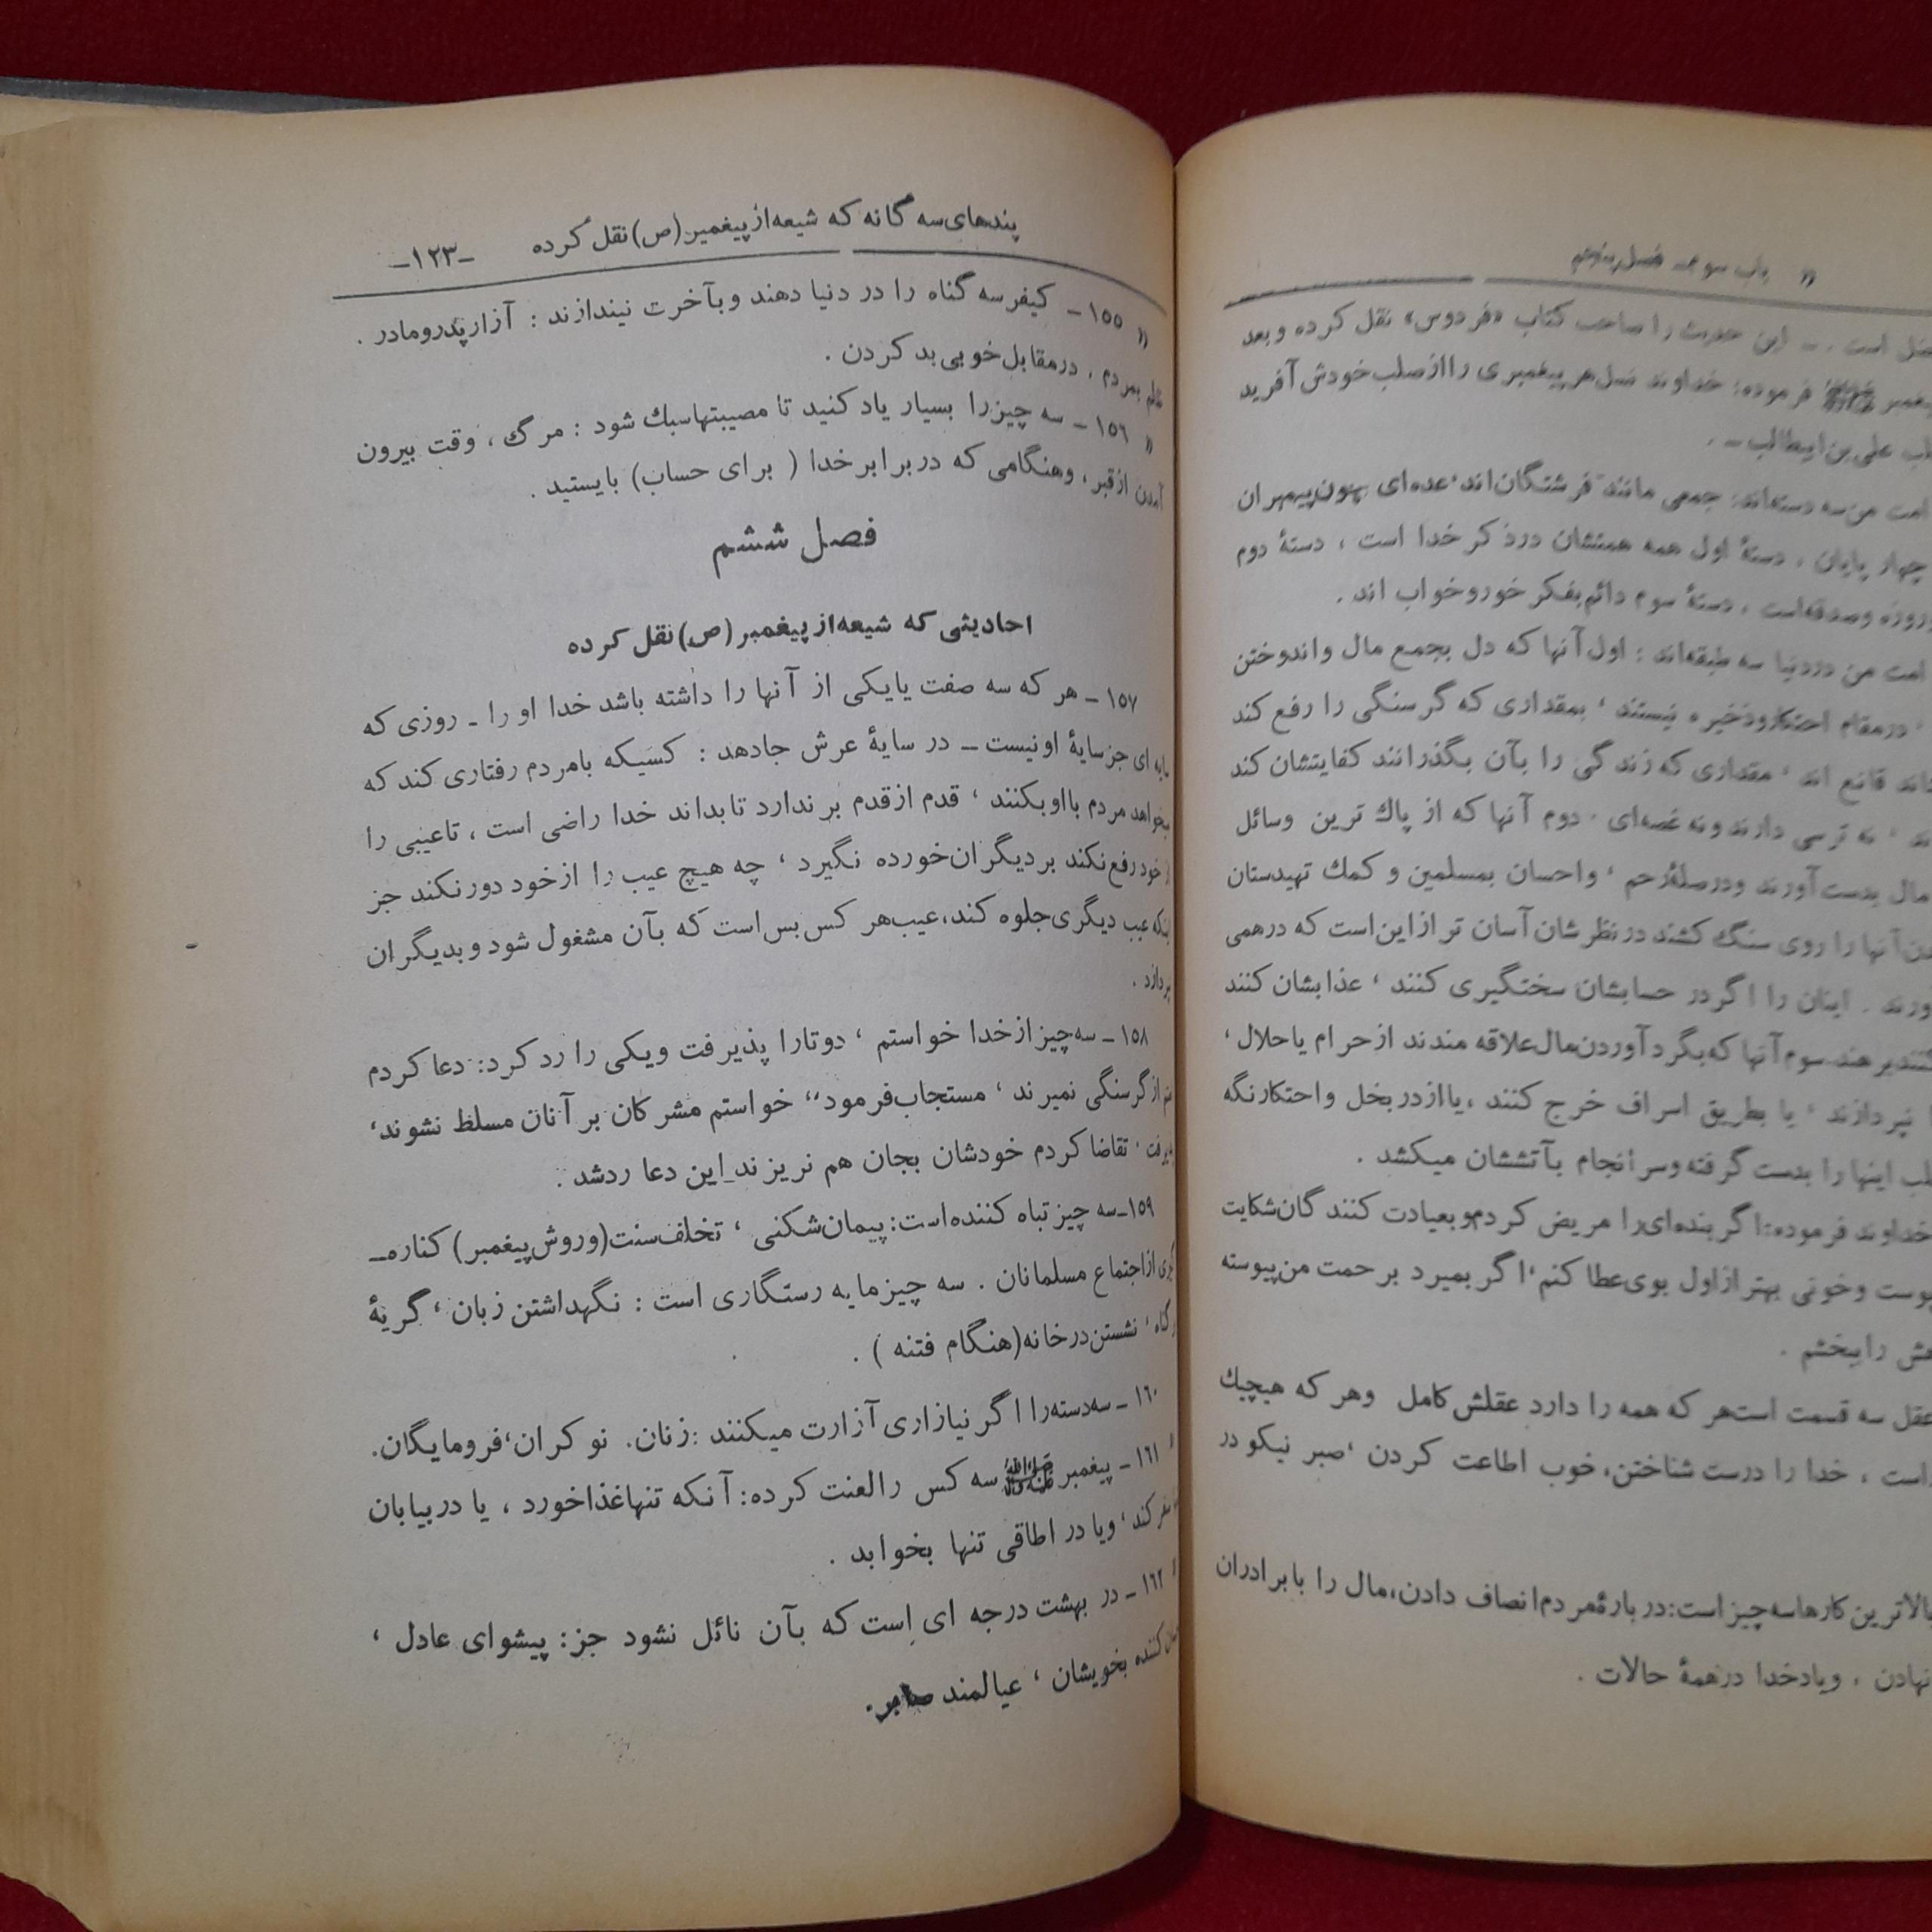 باب سوم ـ فصل پنجم
است ـ این حدیث را صاحب کتاب «فردوس» نقل کرده و بعد
فرموده: خداوند نسل هر پیغمبری را از صلب خودش آفرید
علی بن ابیطالب ـ .
امت من سه دسته‌اند: جمعی مانند فرشتگان‌اند، عده‌ای چون پیمبران
چهار پایان ، دستهٔ اول همه همتشان در ذکر خدا است ، دستهٔ دوم
وروزه وصدقه است ، دستهٔ سوم دائم بفکر خورو خواب اند .
امت من دردنیا سه طبقه‌اند : اول آنها که دل بجمع مال واندوختن
، درمقام احتکاروذخیره نیستند ، بمقداری که گرسنگی را رفع کند
قانع اند ، مقداری که زندگی را بآن بگذرانند کفایتشان کند
، نه ترسی دارند ونه غصه‌ای . دوم آنها که از پاك ترین وسائل
مال بدست آورند ودرصلهٔ رحم ، واحسان بمسلمین و کمك تهیدستان
آنها را روی سنگ کشند درنظرشان آسان تر ازاین است که درهمی
. اینان را اگر در حسابشان سختگیری کنند ، عذابشان کنند
سوم آنها که بگردآوردن مال علاقه مندند از حرام یاحلال ،
نپردازند ، یا بطریق اسراف خرج کنند ،یا ازدر بخل و احتکار نگه
اینها را بدست گرفته وسر انجام بآتششان میکشد .
خداوند فرموده: اگر بنده‌ای را مریض کردم وبعیادت کنندگان شکایت
وخونی بهتر از اول بوی عطا کنم، اگر بمیرد برحمت من پیوسته
را ببخشم .
عقل سه قسمت است هر که همه را دارد عقلش کامل وهر که هیچیك
است ، خدا را درست شناختن، خوب اطاعت کردن ، صبر نیکو در
بالاترین کارها سه چیز است: دربارهٔ مردم انصاف دادن، مال را با برادران
نهادن ، ویاد خدا درهمهٔ حالات .
پندهای سه گانه که شیعه از پیغمبر (ص) نقل کرده ـ۱۲۳ـ
» ۱۵۵ ـ کیفر سه گناه را در دنیا دهند وبآخرت نیندازند : آزار پدرومادر .
بمردم . درمقابل خوبی بد کردن .
» ۱۵۶ ـ سه چیز را بسیار یاد کنید تا مصیبتها سبك شود : مرگ ، وقت بیرون
آمدن ازقبر، وهنگامی که در برابر خدا ( برای حساب) بایستید .
فصل ششم
احادیثی که شیعه از پیغمبر (ص) نقل کرده
۱۵۷ ـ هر که سه صفت یا یکی از آنها را داشته باشد خدا او را ـ روزی که
سایه ای جز سایهٔ او نیست ـ در سایهٔ عرش جادهد : کسیکه بامردم رفتاری کند که
میخواهد مردم با او بکنند ، قدم از قدم بر ندارد تا بداند خدا راضی است ، تاعیبی را
از خود رفع نکند بر دیگران خورده نگیرد ، چه هیچ عیب را از خود دور نکند جز
اینکه عیب دیگری جلوه کند، عیب هر کس بس است که بآن مشغول شود و بدیگران
۱۵۸ ـ سه چیز از خدا خواستم ، دوتا را پذیرفت ویکی را رد کرد: دعا کردم
از گرسنگی نمیرند ، مستجاب فرمود، خواستم مشرکان بر آنان مسلط نشوند،
، تقاضا کردم خودشان بجان هم نریزند ـ این دعا ردشد .
۱۵۹ـسه چیز تباه کننده است: پیمان شکنی ، تخلف سنت (وروش پیغمبر) کناره ـ
گیری از اجتماع مسلمانان . سه چیز مایه رستگاری است : نگهداشتن زبان ، گریهٔ
گناه ، نشستن در خانه (هنگام فتنه ) .
۱۶۰ ـ سه دسته را اگر نیازاری آزارت میکنند : زنان. نوکران، فرومایگان.
۱۶۱ ـ پیغمبر ﷺ سه کس را لعنت کرده: آنکه تنها غذاخورد ، یا در بیابان
سفر کند ، ویا در اطاقی تنها بخوابد .
۱۶۲ ـ در بهشت درجه ای است که بآن نائل نشود جز: پیشوای عادل ،
کننده بخویشان ، عیالمند صابر.